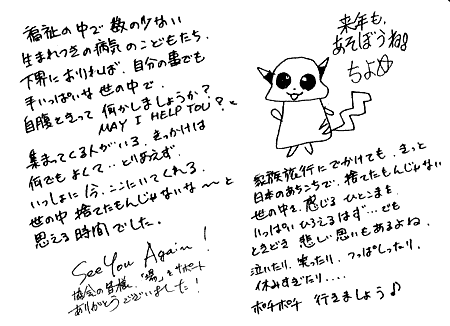 福祉の中で数の少ない
生まれつきの病気のこどもたち。
下界におりれば、自分の事でも
手いっぱいな世の中で、
自腹をきって何かしましょうか?
MAY I HELP YOU?と
集まってくる人がいる。きっかけは
何でもよくて…とりあえず、
いっしょに今、ここにいてくれる。
世の中捨てたもんじゃないな〜と
思える時間でした。
See You Again!
協会の皆様、「場」をサポート
ありがとうございました!
来年も、
あそぼうね!
ちよ
家族旅行にでかけても、きっと
日本のあちこちで、捨てたもんじゃない
世の中を、感じるひとこまを
いっぱいひろえるはず…でも
ときどき悲しい思いもあるよね。
泣いたり、笑ったり、つっぱしったり、
休みすぎたり....
ボチボチ行きましょう♪